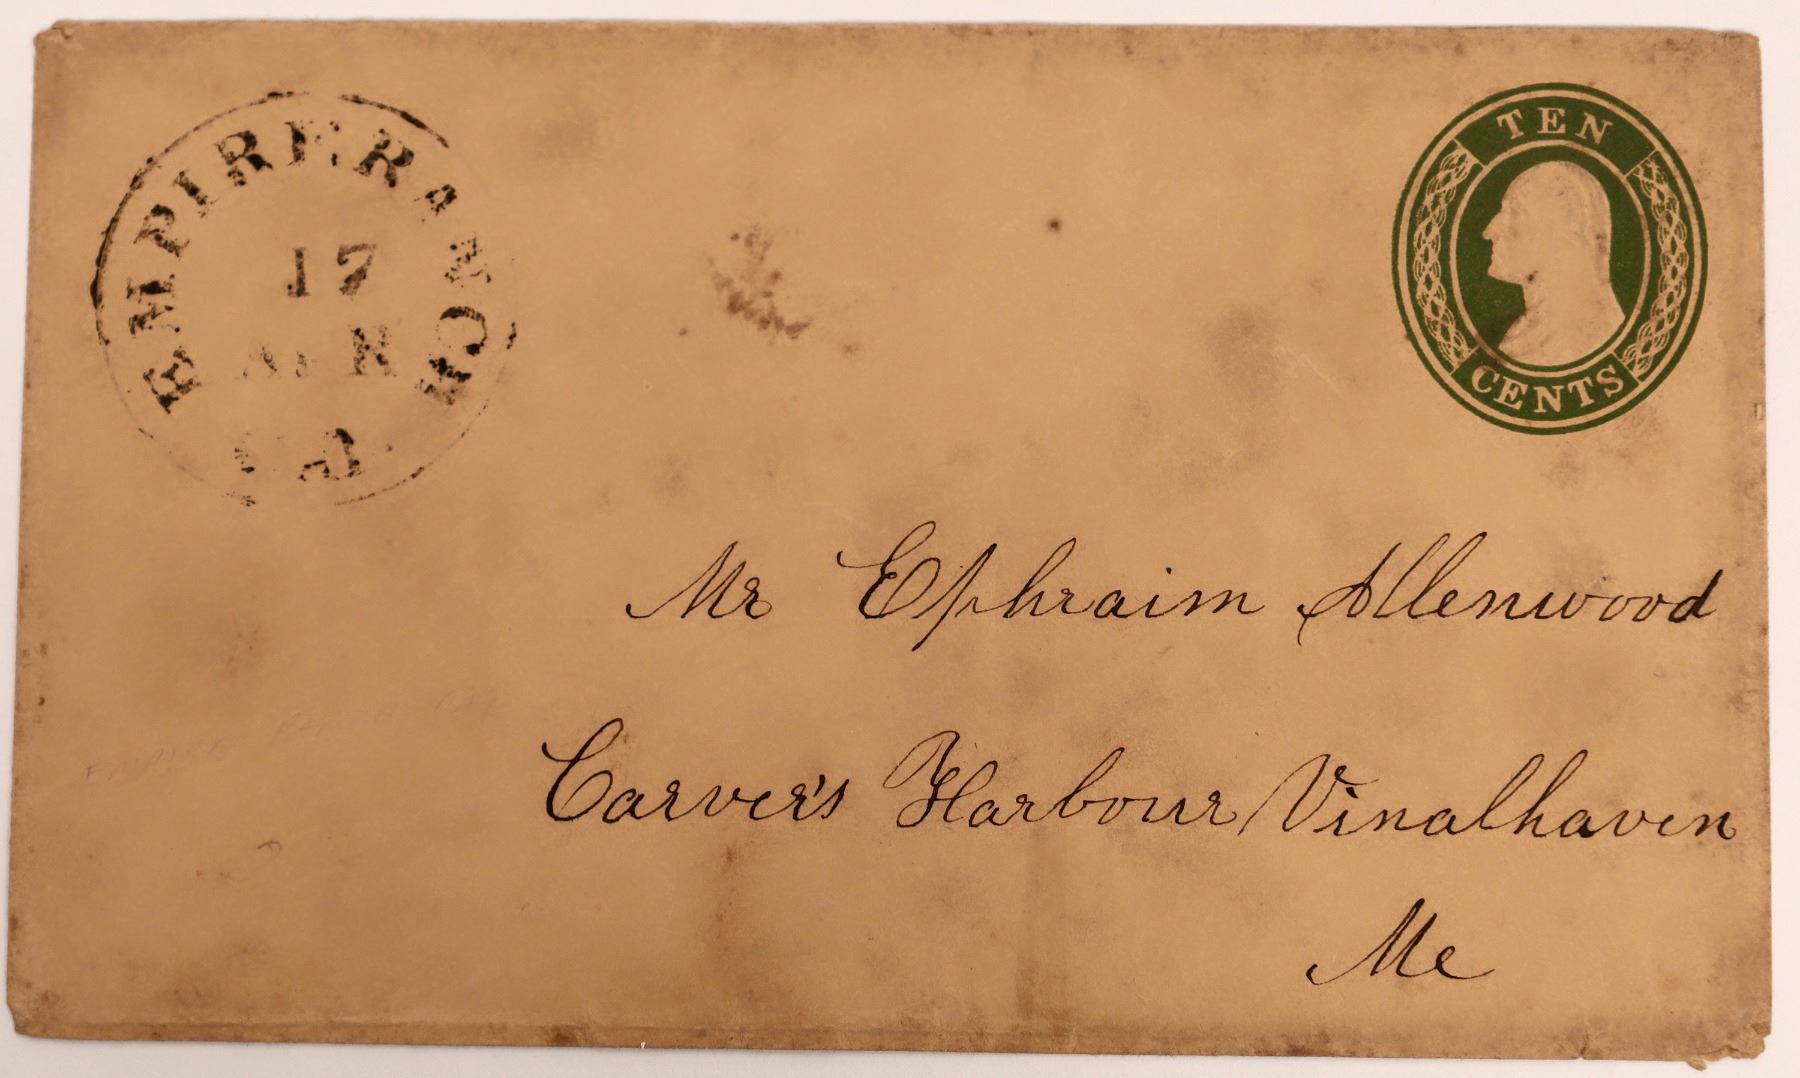 EMPIRE RANCH
17
APR
TEN
CENTS
Mr Ephraim Allenwood
Carver's Harbour Vinalhaven
Me